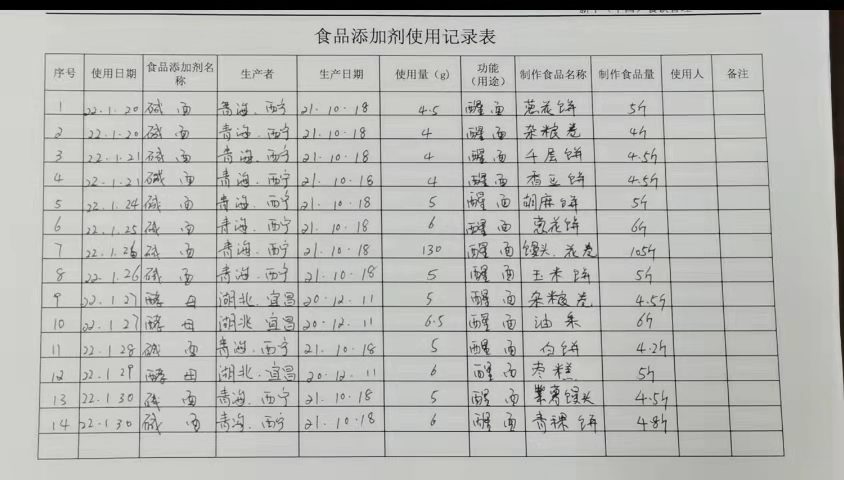 食品添加剂使用记录表
序号 使用日期 食品添加剂名称 生产者 生产日期 使用量（g） 功能（用途） 制作食品名称 制作食品量 使用人 备注
1 22.1.20 碱面 青海.西宁 21.10.18 4.5 醒面 葱花饼 5斤
2 22.1.20 碱面 青海.西宁 21.10.18 4 醒面 杂粮卷 4斤
3 22.1.21 碱面 青海.西宁 21.10.18 4 醒面 千层饼 4.5斤
4 22.1.21 碱面 青海.西宁 21.10.18 4 醒面 香豆饼 4.5斤
5 22.1.24 碱面 青海.西宁 21.10.18 5 醒面 胡麻饼 5斤
6 22.1.25 碱面 青海.西宁 21.10.18 6 醒面 葱花饼 6斤
7 22.1.26 碱面 青海.西宁 21.10.18 130 醒面 馒头.花卷 105斤
8 22.1.26 碱面 青海.西宁 21.10.18 5 醒面 玉米饼 5斤
9 22.1.27 酵母 湖北.宜昌 20.12.11 5 醒面 杂粮卷 4.5斤
10 22.1.27 酵母 湖北.宜昌 20.12.11 6.5 醒面 油条 6斤
11 22.1.28 碱面 青海.西宁 21.10.18 5 醒面 白饼 4.2斤
12 22.1.29 酵母 湖北.宜昌 20.12.11 6 醒面 枣糕 5斤
13 22.1.30 碱面 青海.西宁 21.10.18 5 醒面 紫薯馒头 4.5斤
14 22.1.30 碱面 青海.西宁 21.10.18 6 醒面 青稞饼 4.8斤